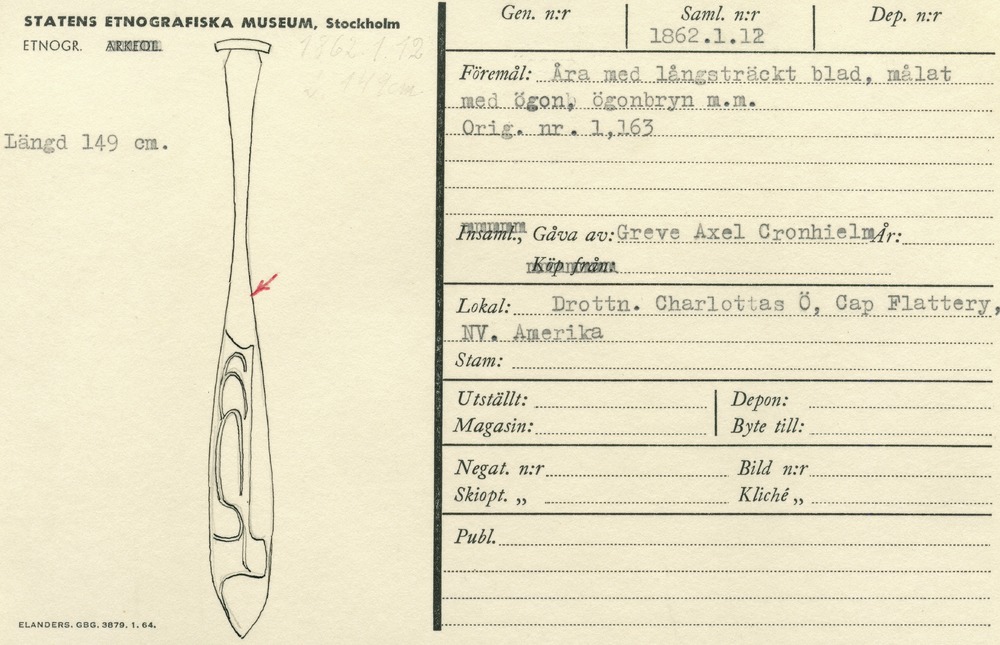 STATENS ETNOGRAFISKA MUSEUM, Stockholm
ETNOGR. ARKEOL.
1862.1.12
149 cm.
Längd 149 cm.
ELANDERS. GBG. 3879. 1. 64.
Gen. n:r
Saml. n:r
1862.1.12
Dep. n:r
Föremål: Åra med långsträckt blad, målat
med ögon, ögonbryn m.m.
Orig. nr. 1,163
Insaml., Gåva av: Greve Axel Cronhielm År:
Köp från:
Lokal: Drottn. Charlottas Ö, Cap Flattery,
NV. Amerika
Stam:
Utställt: Depon:
Magasin: Byte till:
Negat. n:r Bild n:r
Skiopt. „ Kliché „
Publ.